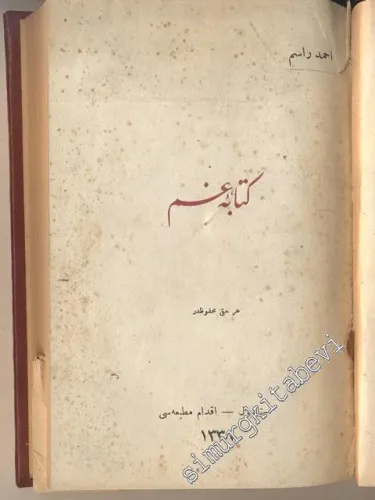 احمد راسم
كتابۀ غم
هر حق محفوظدر
— اقدام مطبعه‌سى
simurgkitabevi